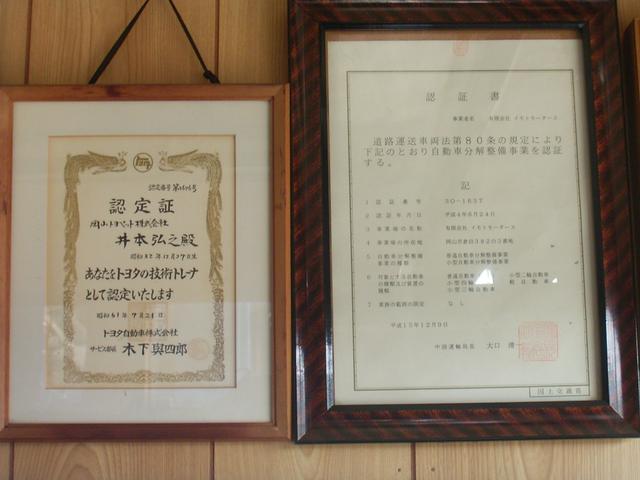 認定証
岡山トヨペット株式会社
井本弘之殿
あなたをトヨタの技術トレーナ
として認定いたします
昭和61年7月21日
トヨタ自動車株式会社
サービス部長 木下與四郎
認証書
事業者名 有限会社 イモトモータース
道路運送車両法第80条の規定により
下記のとおり自動車分解整備事業を認証
する。
記
1 認証番号 30-1637
2 認証年月日 平成4年6月24日
3 事業場の名称 有限会社 イモトモータース
4 事業場の所在地
5 自動車分解整備 普通自動車分解整備事業
事業の種類 小型自動車分解整備事業
6 対象とする自動車 普通自動車 小型二輪自動車
の種類及び装置の 小型四輪自動車 軽自動車
種類 小型三輪自動車
7 業務の範囲の限定 なし
平成15年12月9日
中国運輸局長 大口 清一
国土交通省